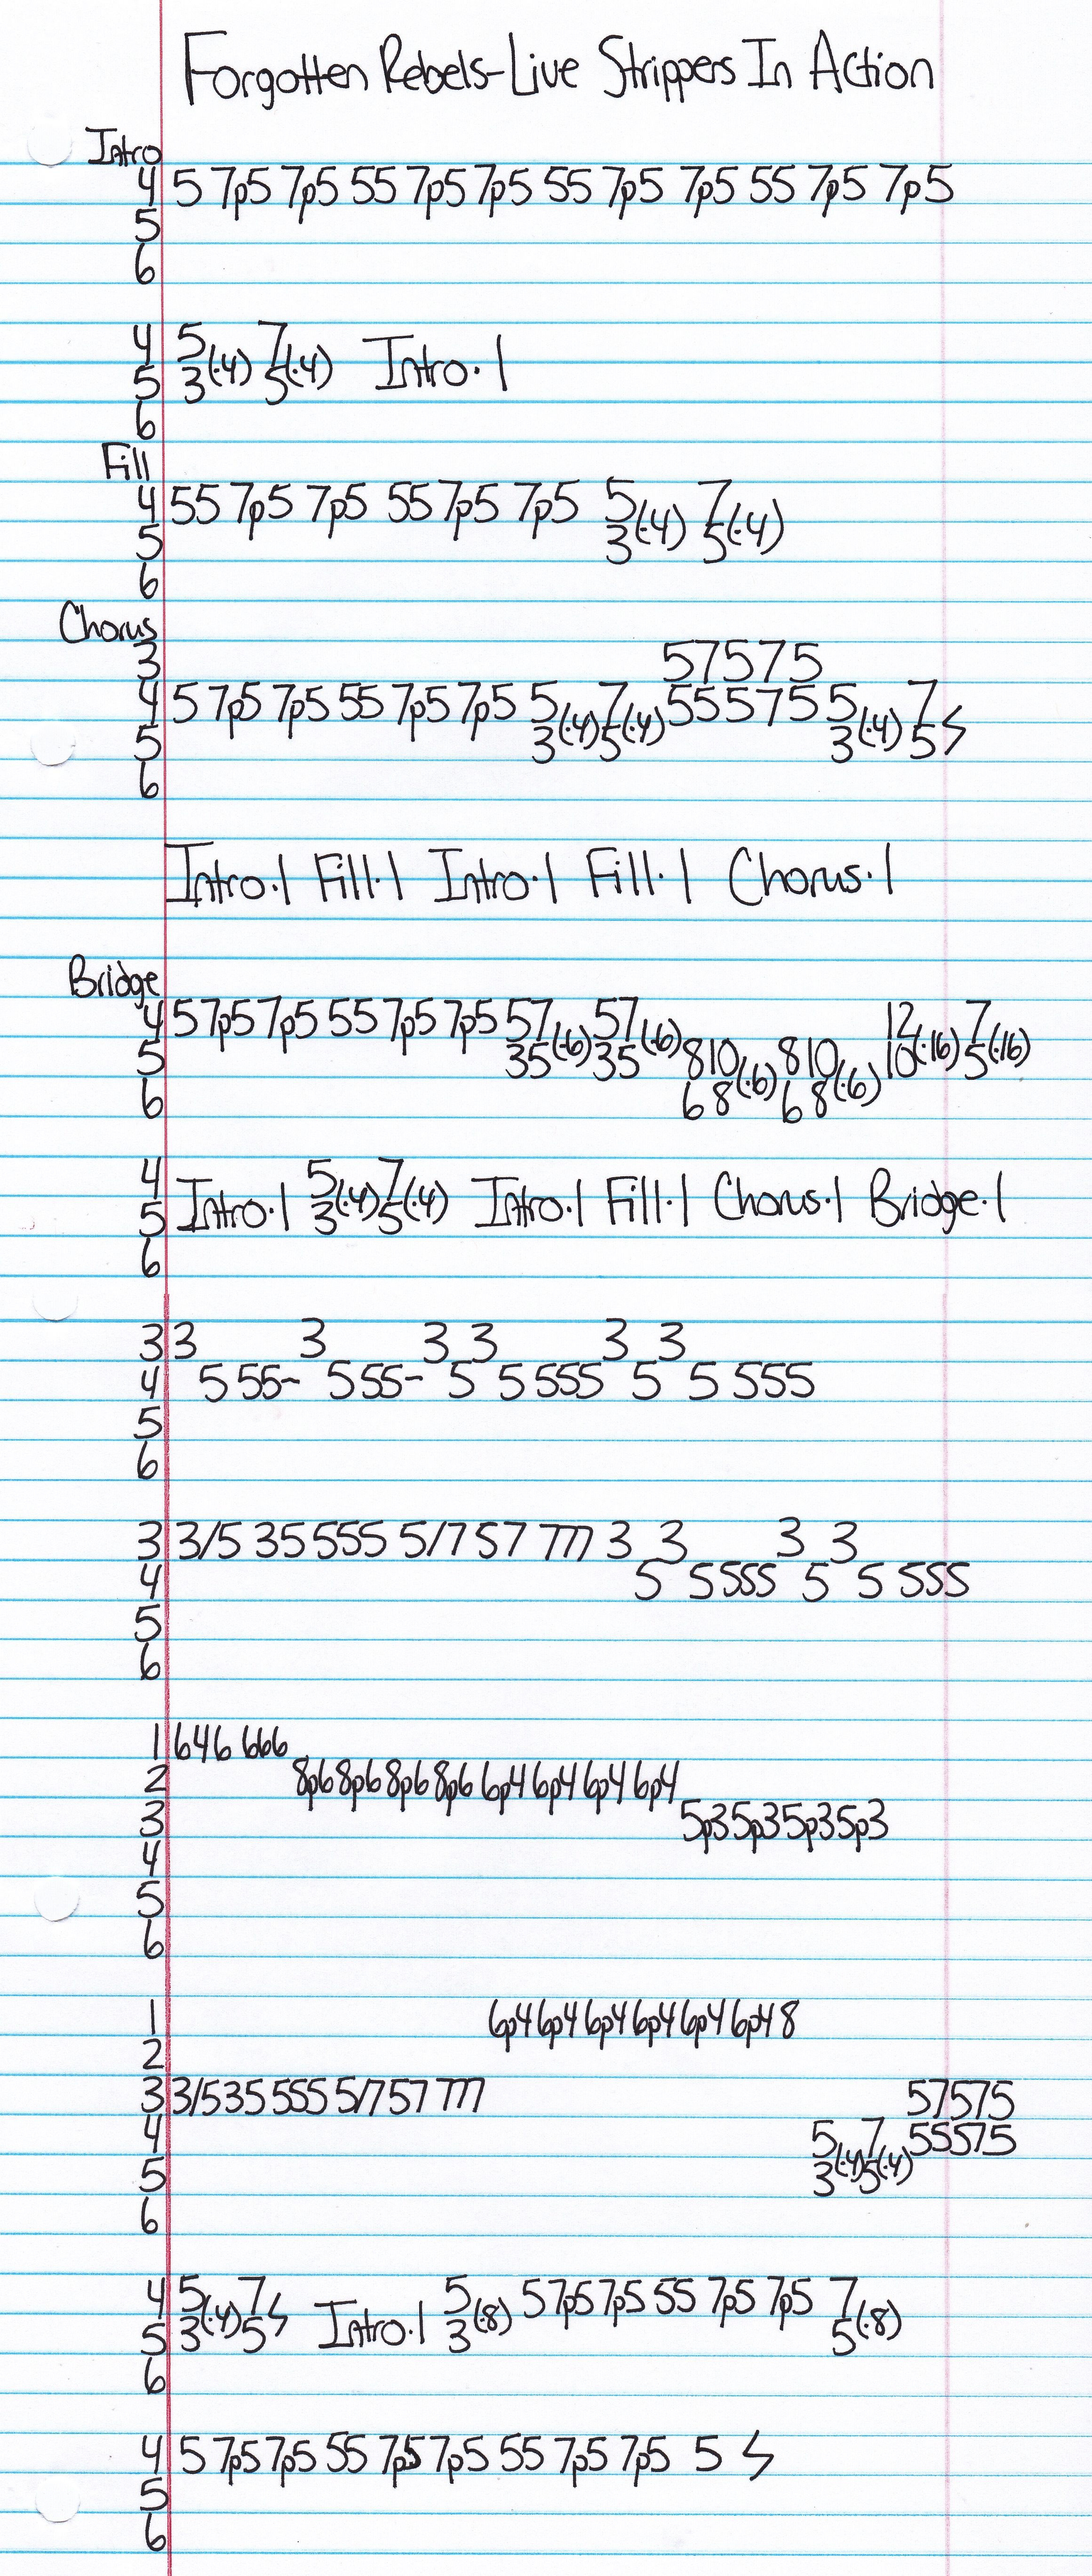 Forgotten Rebels-Live Strippers In Action
Intro
4 5 7p5 7p5 55 7p5 7p5 55 7p5 7p5 55 7p5 7p5
5
6
4 5 7
5 3(·4) 5(·4) Intro·1
6
Fill
4 55 7p5 7p5 55 7p5 7p5 5 7
5 3(·4) 5(·4)
6
Chorus
3 57575
4 5 7p5 7p5 55 7p5 7p5 5 7 55575 5 7
5 3(·4) 5(·4) 3(·4) 5
6
Intro·1 Fill·1 Intro·1 Fill·1 Chorus·1
Bridge
4 5 7p5 7p5 55 7p5 7p5 57 57 12 7
5 35(·6) 35(·6) 810 810 10(·16) 5(·16)
6 68(·6) 68(·6)
4 5 7
5 Intro·1 3(·4) 5(·4) Intro·1 Fill·1 Chorus·1 Bridge·1
6
3 3 3 3 3 3 3
4 5 55~ 5 55~ 5 5 555 5 5 555
5
6
3 3/5 35 555 5/7 57 777 3 3 3 3
4 5 5 555 5 5 555
5
6
1 646 666
2 8p6 8p6 8p6 8p6 6p4 6p4 6p4 6p4
3 5p3 5p3 5p3 5p3
4
5
6
1 6p4 6p4 6p4 6p4 6p4 6p4 8
2
3 3/5 35 555 5/7 57 777 57575
4 5 7 55575
5 3(·4) 5(·4)
6
4 5 7 5 5 7p5 7p5 55 7p5 7p5 7
5 3(·4) 5 Intro·1 3(·8) 5(·8)
6
4 5 7p5 7p5 55 7p5 7p5 55 7p5 7p5 5
5
6